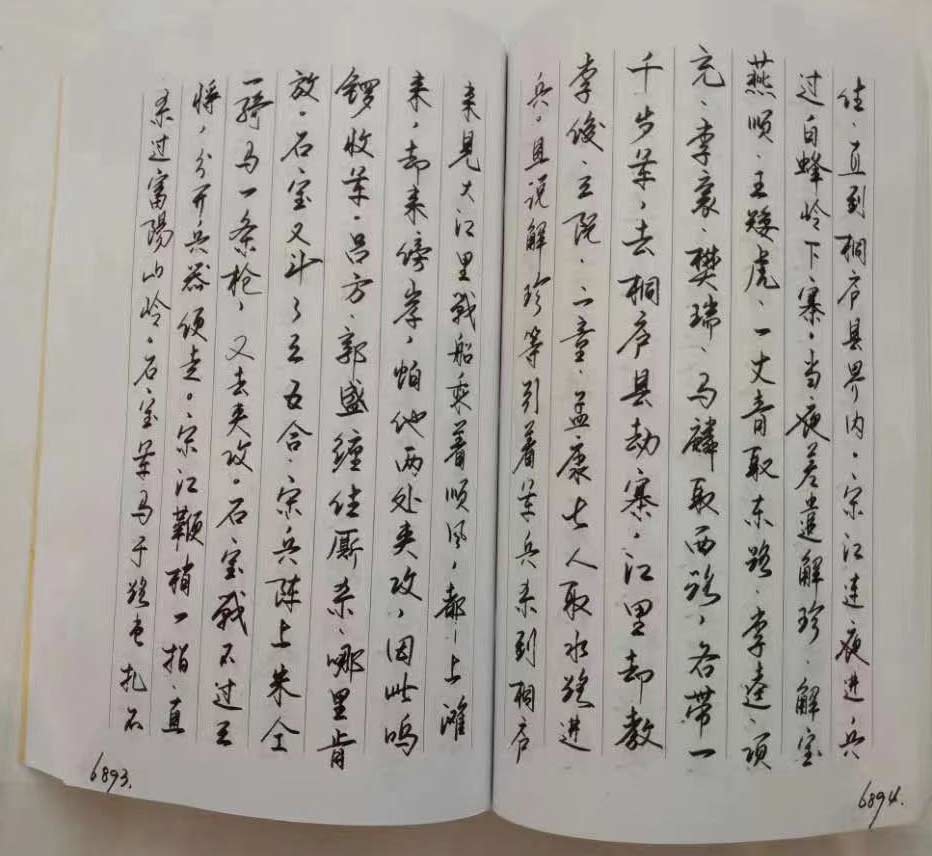 来见大江里战船乘着顺风,都上滩
来,却来傍岸,怕他两处夹攻,因此鸣
锣收军。吕方、郭盛缠住厮杀,哪里肯
放。石宝又斗了三五合,宋兵阵上朱仝
一骑马一条枪,又去夹攻。石宝战不过三
将,分开兵器便走。宋江鞭梢一指,直
杀过富陽山岭。石宝军马于路屯扎不
6893.
住,直到桐庐县界内。宋江连夜进兵
过白蜂岭下寨。当夜差遣解珍、解宝
燕顺、王矮虎、一丈青取东路,李逵、项
充、李衮、樊瑞、马麟取西路,各带一
千步军,去桐庐县劫寨,江里却教
李俊、三阮、二童、孟康七人取水路进
兵。且说解珍等引着军兵杀到桐庐
6894.